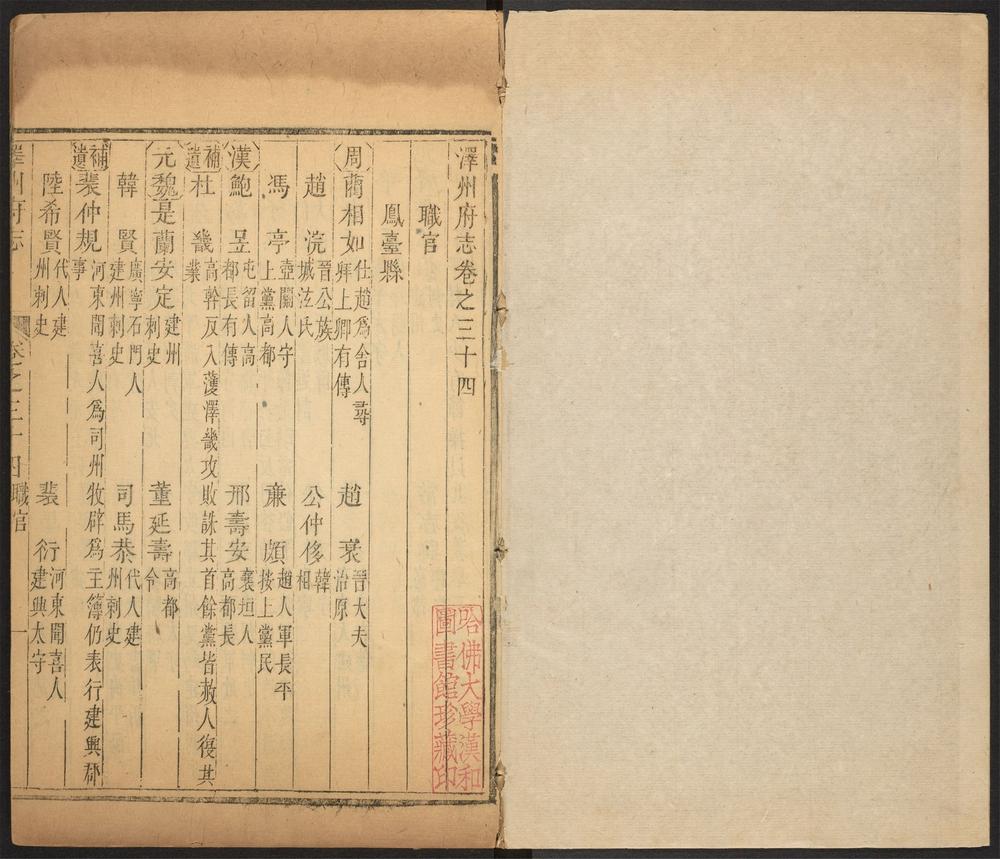 澤州府志卷之三十四
職官
鳳臺縣
周 藺相如 仕趙爲舍人尋拜上卿有傳 趙衰 晉大夫治原
趙浣 晉公族城泫氏 公仲侈 韓相
馮亭 壺關人守上黨高都 亷頗 趙人軍長平按上黨民
漢 鮑昱 屯留人高都長有傳 邢壽安 襄垣人高都長
補遺 杜畿 高幹反入濩澤畿攻敗誅其首餘黨皆赦人復其業
元魏 是蘭安定 建州刺史 董延壽 高都令
韓賢 廣寧石門人建州刺史 司馬恭 代人建州刺史
補遺 裴仲規 河東聞喜人爲司州牧辟爲主簿仍表行建興郡事
陸希賢 代人建州刺史 裴衍 河東聞喜人建興太守
澤州府志 卷之三十四 職官 一
哈佛大學漢和
圖書館珍藏印